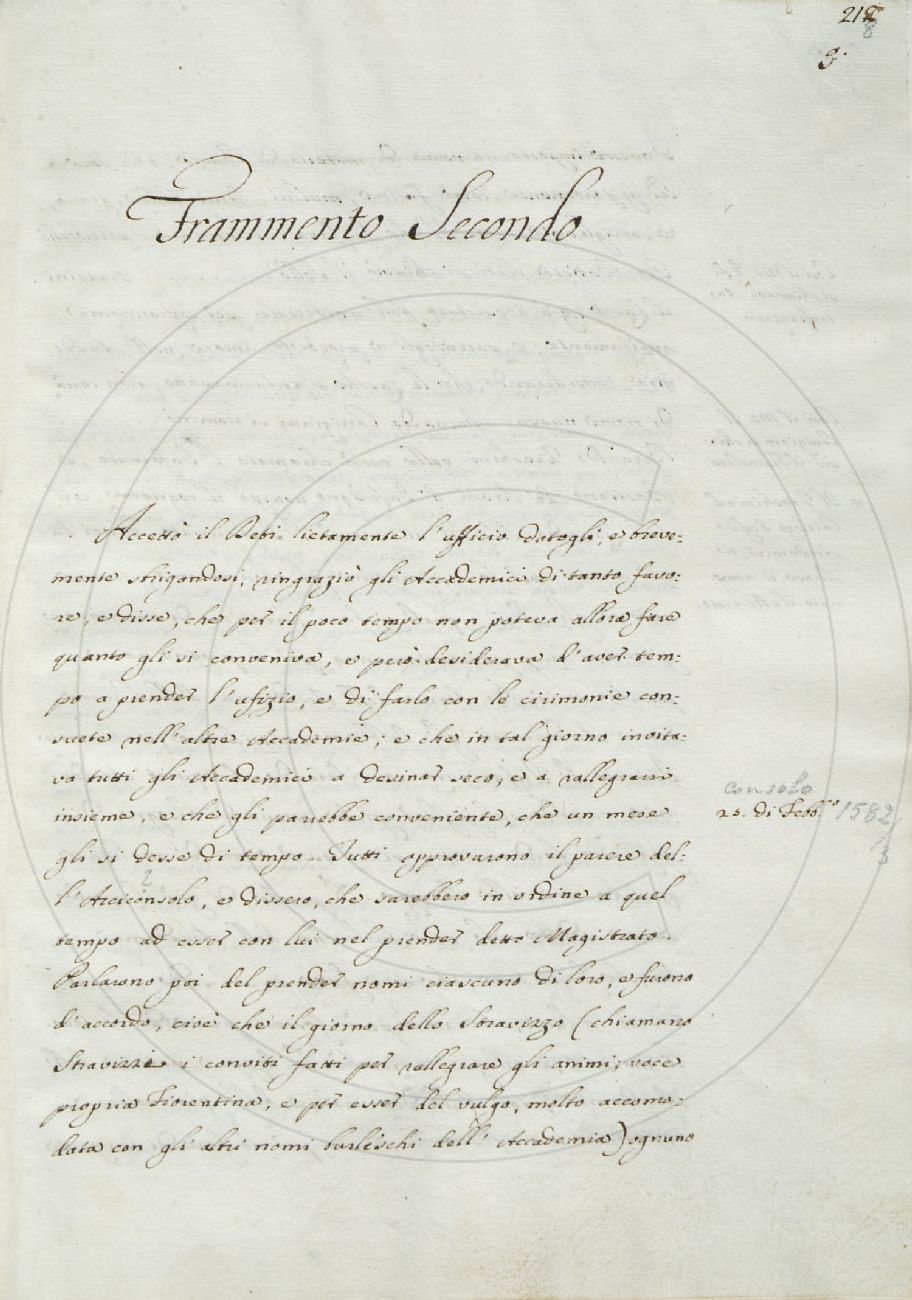 218
3.
Frammento Secondo
Accettò il Deti lietamente l'ufficio datogli, e breve=
mente strigandosi, ringraziò gli Accademici di tanto favo=
re, e disse, che per il poco tempo non poteva allora fare
quanto gli si conveniva, e però desiderava d'aver tem=
po a prender l'ufizio, e di farlo con le cirimonie con=
suete nell'altre Accademie; e che in tal giorno invita=
va tutti gli Accademici a desinar seco, e a rallegrarsi
insieme, e che gli parrebbe conveniente, che un mese
gli si desse di tempo. Tutti approvarono il parere del=
l'Arciconsolo, e dissero, che sarebbero in ordine a quel
tempo ad esser con lui nel prender detto Magistrato.
Parlarono poi del prender nomi ciascuno di loro, e furono
d'accordo, cioè che il giorno dello Stravizzo (chiamano
Stravizzi i conviti fatti per rallegrare gli animi; voce
propria Fiorentina, e per esser del vulgo, molto accomo=
data con gli altri nomi burleschi dell'Accademia) ognuno
consolo
25. di Febb.º 1582/3